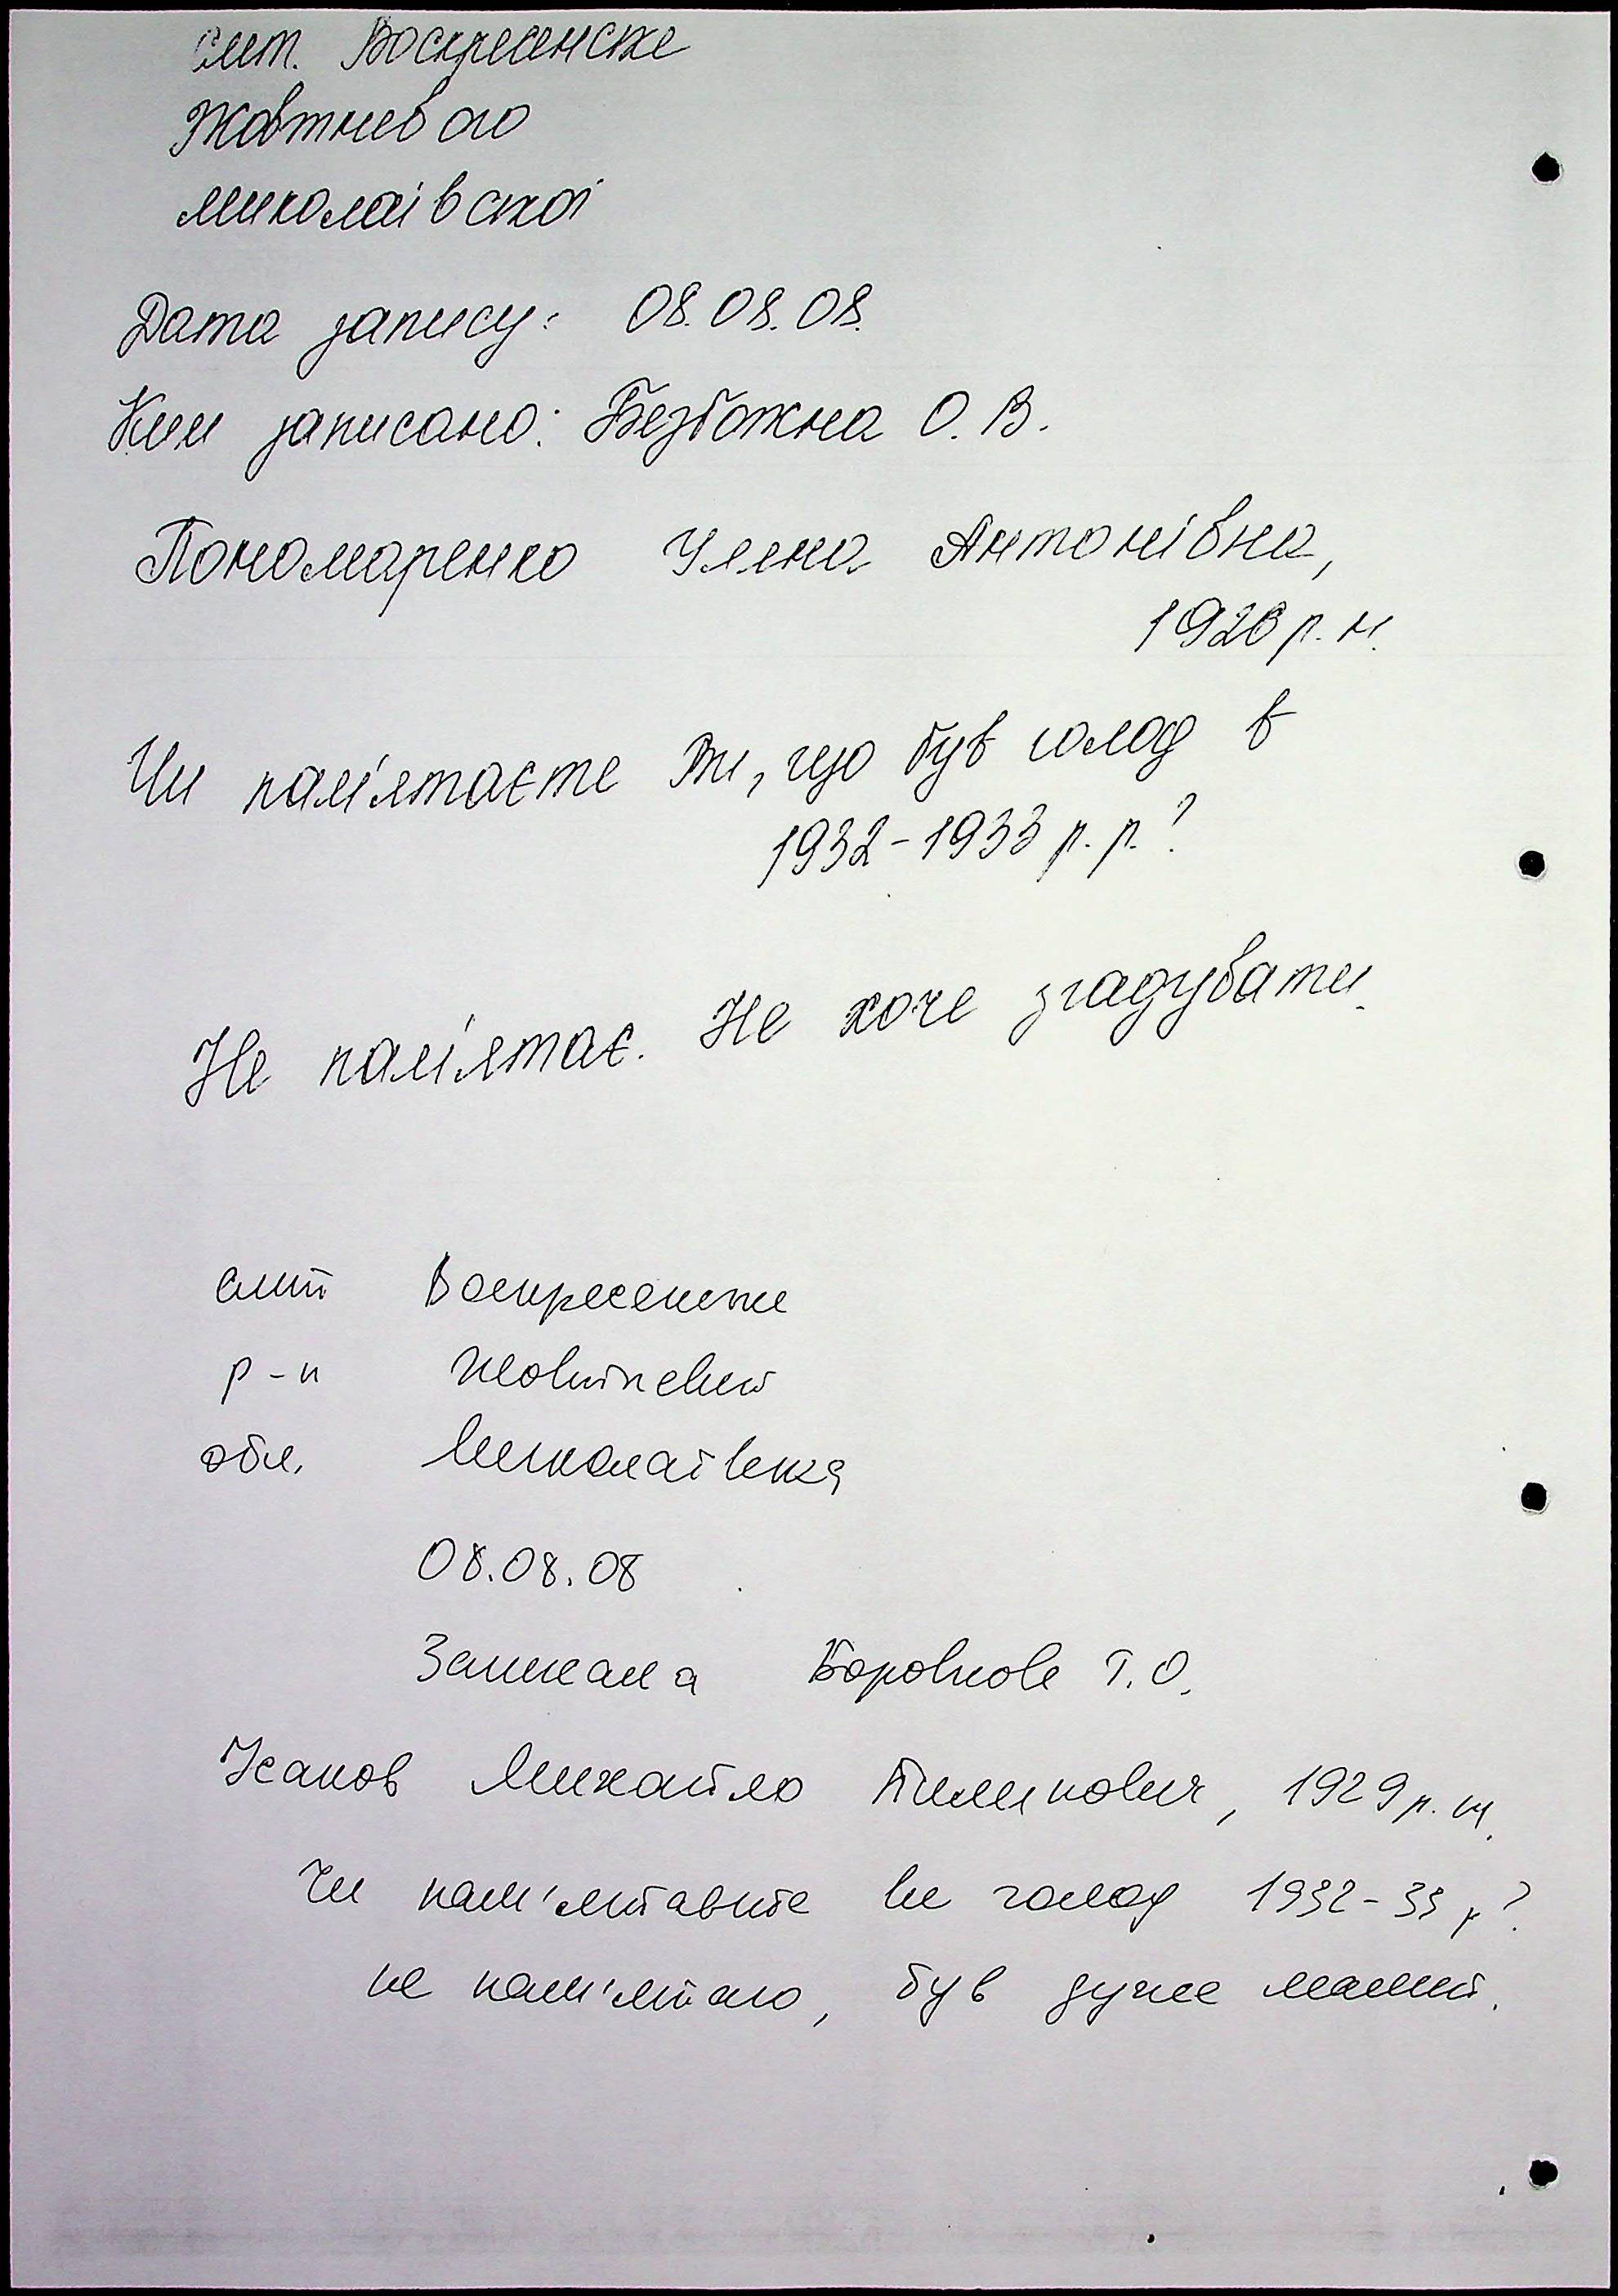 смт. Воскресенське
Жовтневого
Миколаївської
Дата запису: 08.08.08.
Ким записано: Безбожна О. В.
Пономаренко Уляна Антонівна,
р. н.
Чи пам'ятаєте Ви, що був голод в
1932-1933 р. р.?
Не пам'ятає. Не хоче згадувати.
смт Воскресенське
р-н Жовтневий
обл. Миколаївська
08.08.08
Записала Боровкова Т. О.
Михайло 1929 р. н.
Чи пам'ятаєте ви голод 1932-33 р?
не пам'ятаю, був дуже малий.